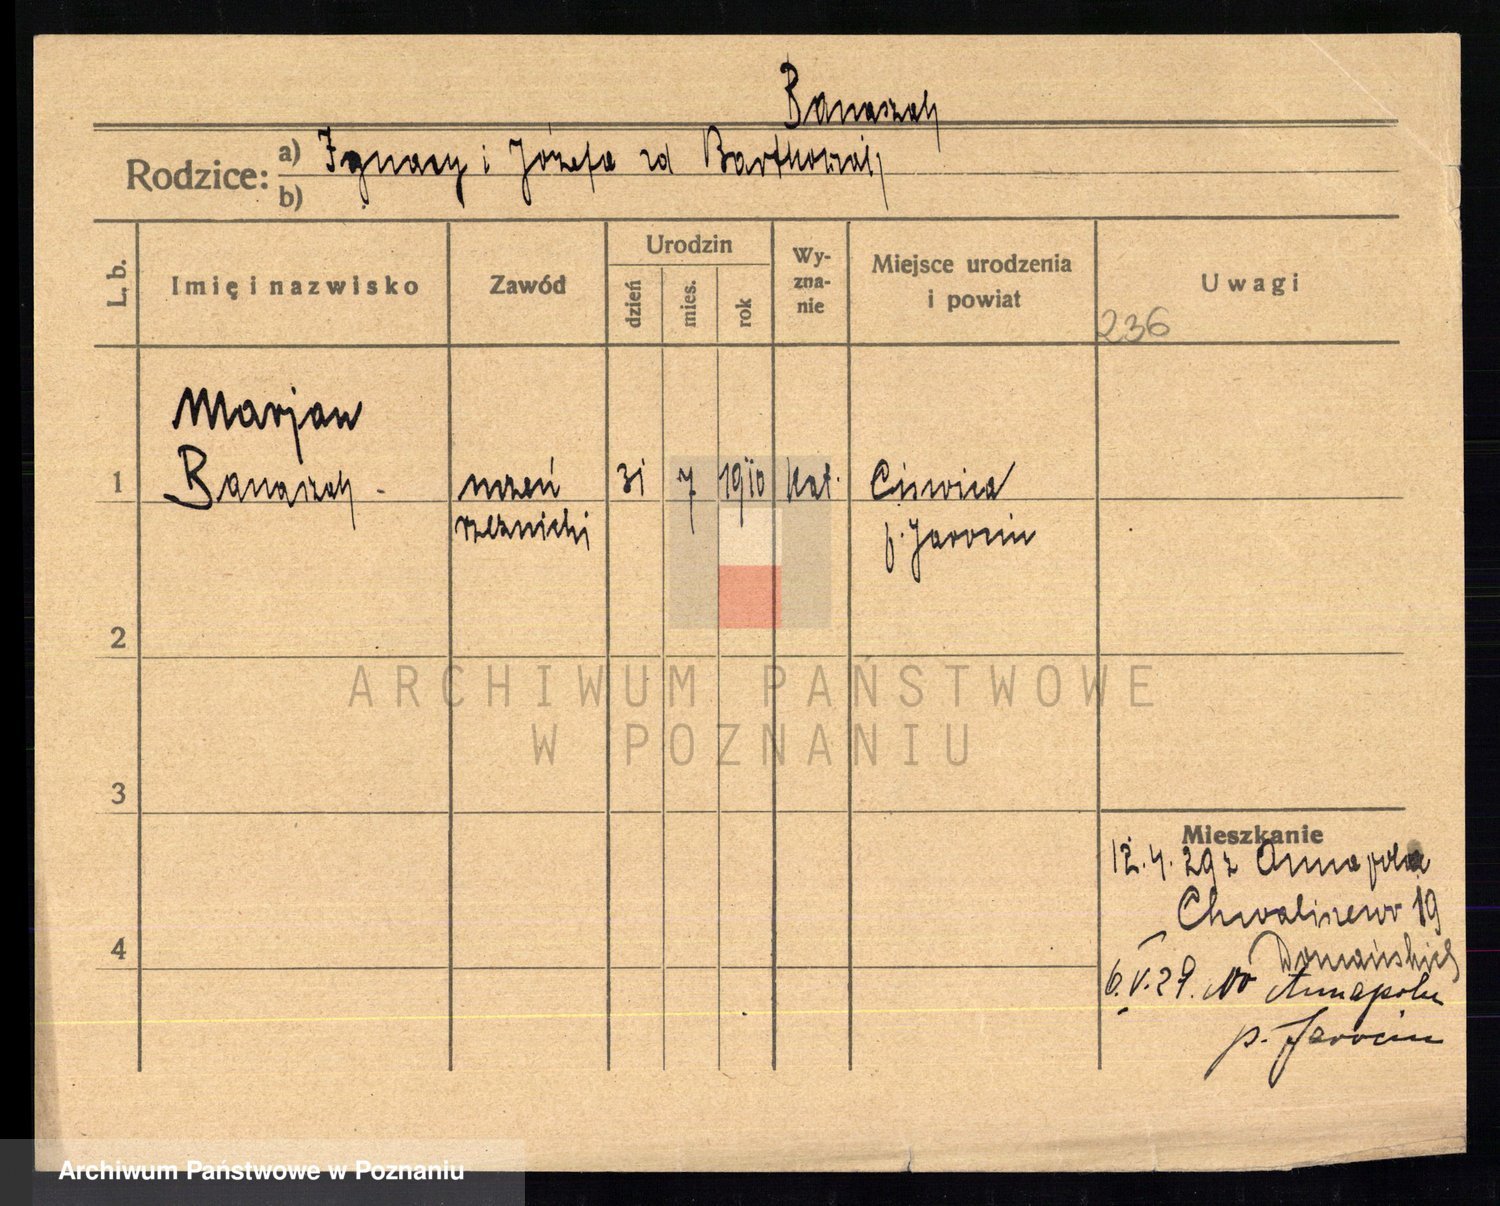 Banaszak
Rodzice: a) Ignacy i Józefa zd Bartkowiak
b)
L. b. Imię i nazwisko Zawód Urodzin dzień mies. rok Wyznanie Miejsce urodzenia i powiat Uwagi
236
Marjan
1 Banaszak - uczeń 31 7 1910 kat. Ciświca
rzeźnicki p. Jarocin
2
ARCHIWUM PAŃSTWOWE
W POZNANIU
3
Mieszkanie
12.4.29 z Annapola
Chwaliszewo 19
4
Domański
6.V.29. do Annapolu
p. Jarocin
Archiwum Państwowe w Poznaniu